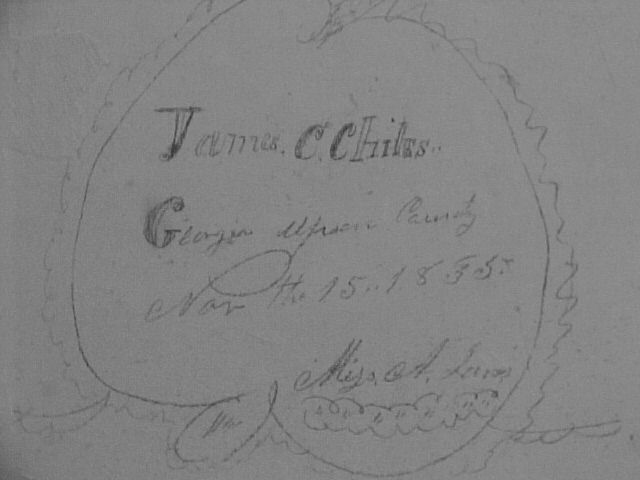 James. C. Chiles..
Georgia Upson County
Nov the 15.. 1835
Miss. A.